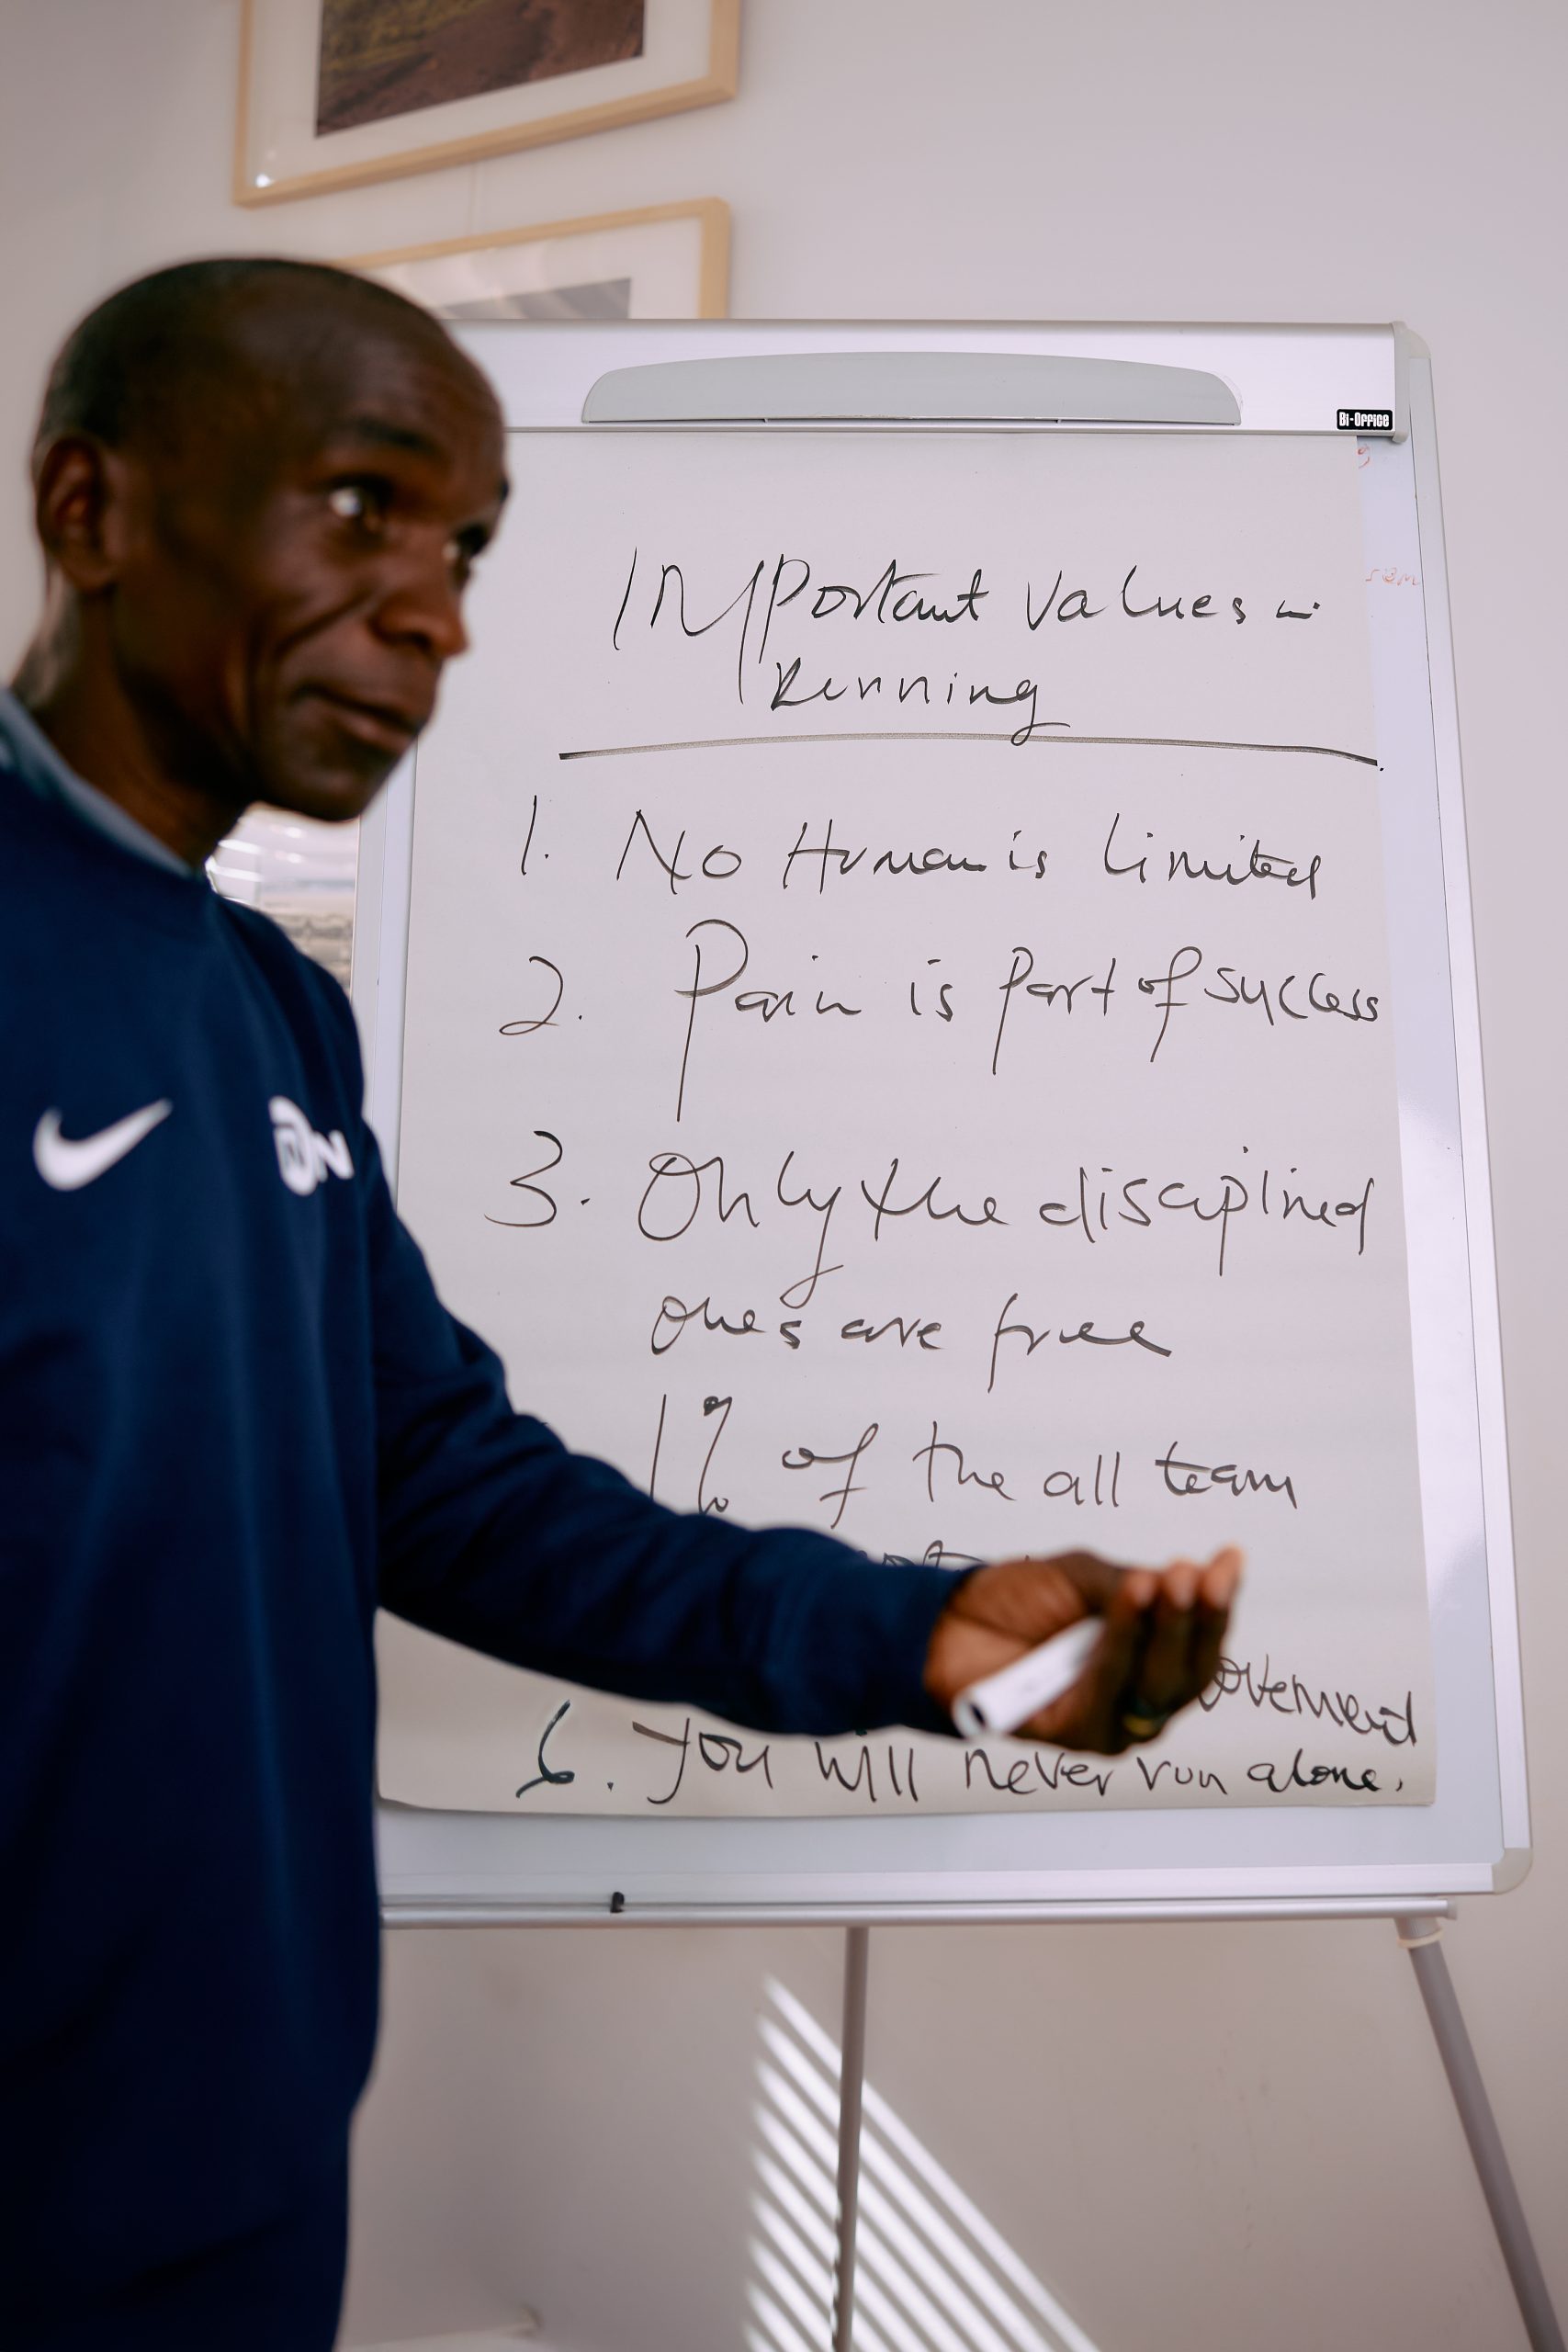 Bi-Office
Important Values in
Running
1. No Human is limited
2. Pain is part of success
3. Only the disciplined
ones are free
1% of the all team
6. You will never run alone.